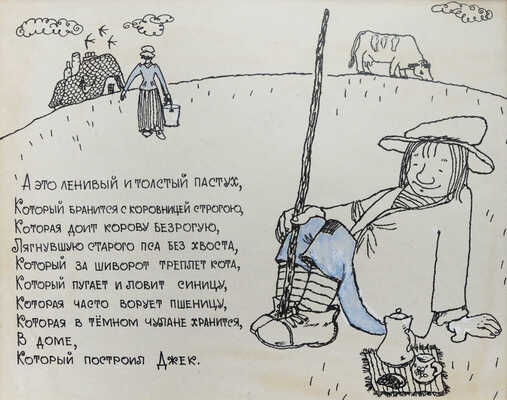 А это ленивый и толстый пастух,
Который бранится с коровницей строгою,
Которая доит корову безрогую,
Лягнувшую старого пса без хвоста,
Который за шиворот треплет кота,
Который пугает и ловит синицу,
Которая часто ворует пшеницу,
Которая в тёмном чулане хранится,
В доме,
Который построил Джек.